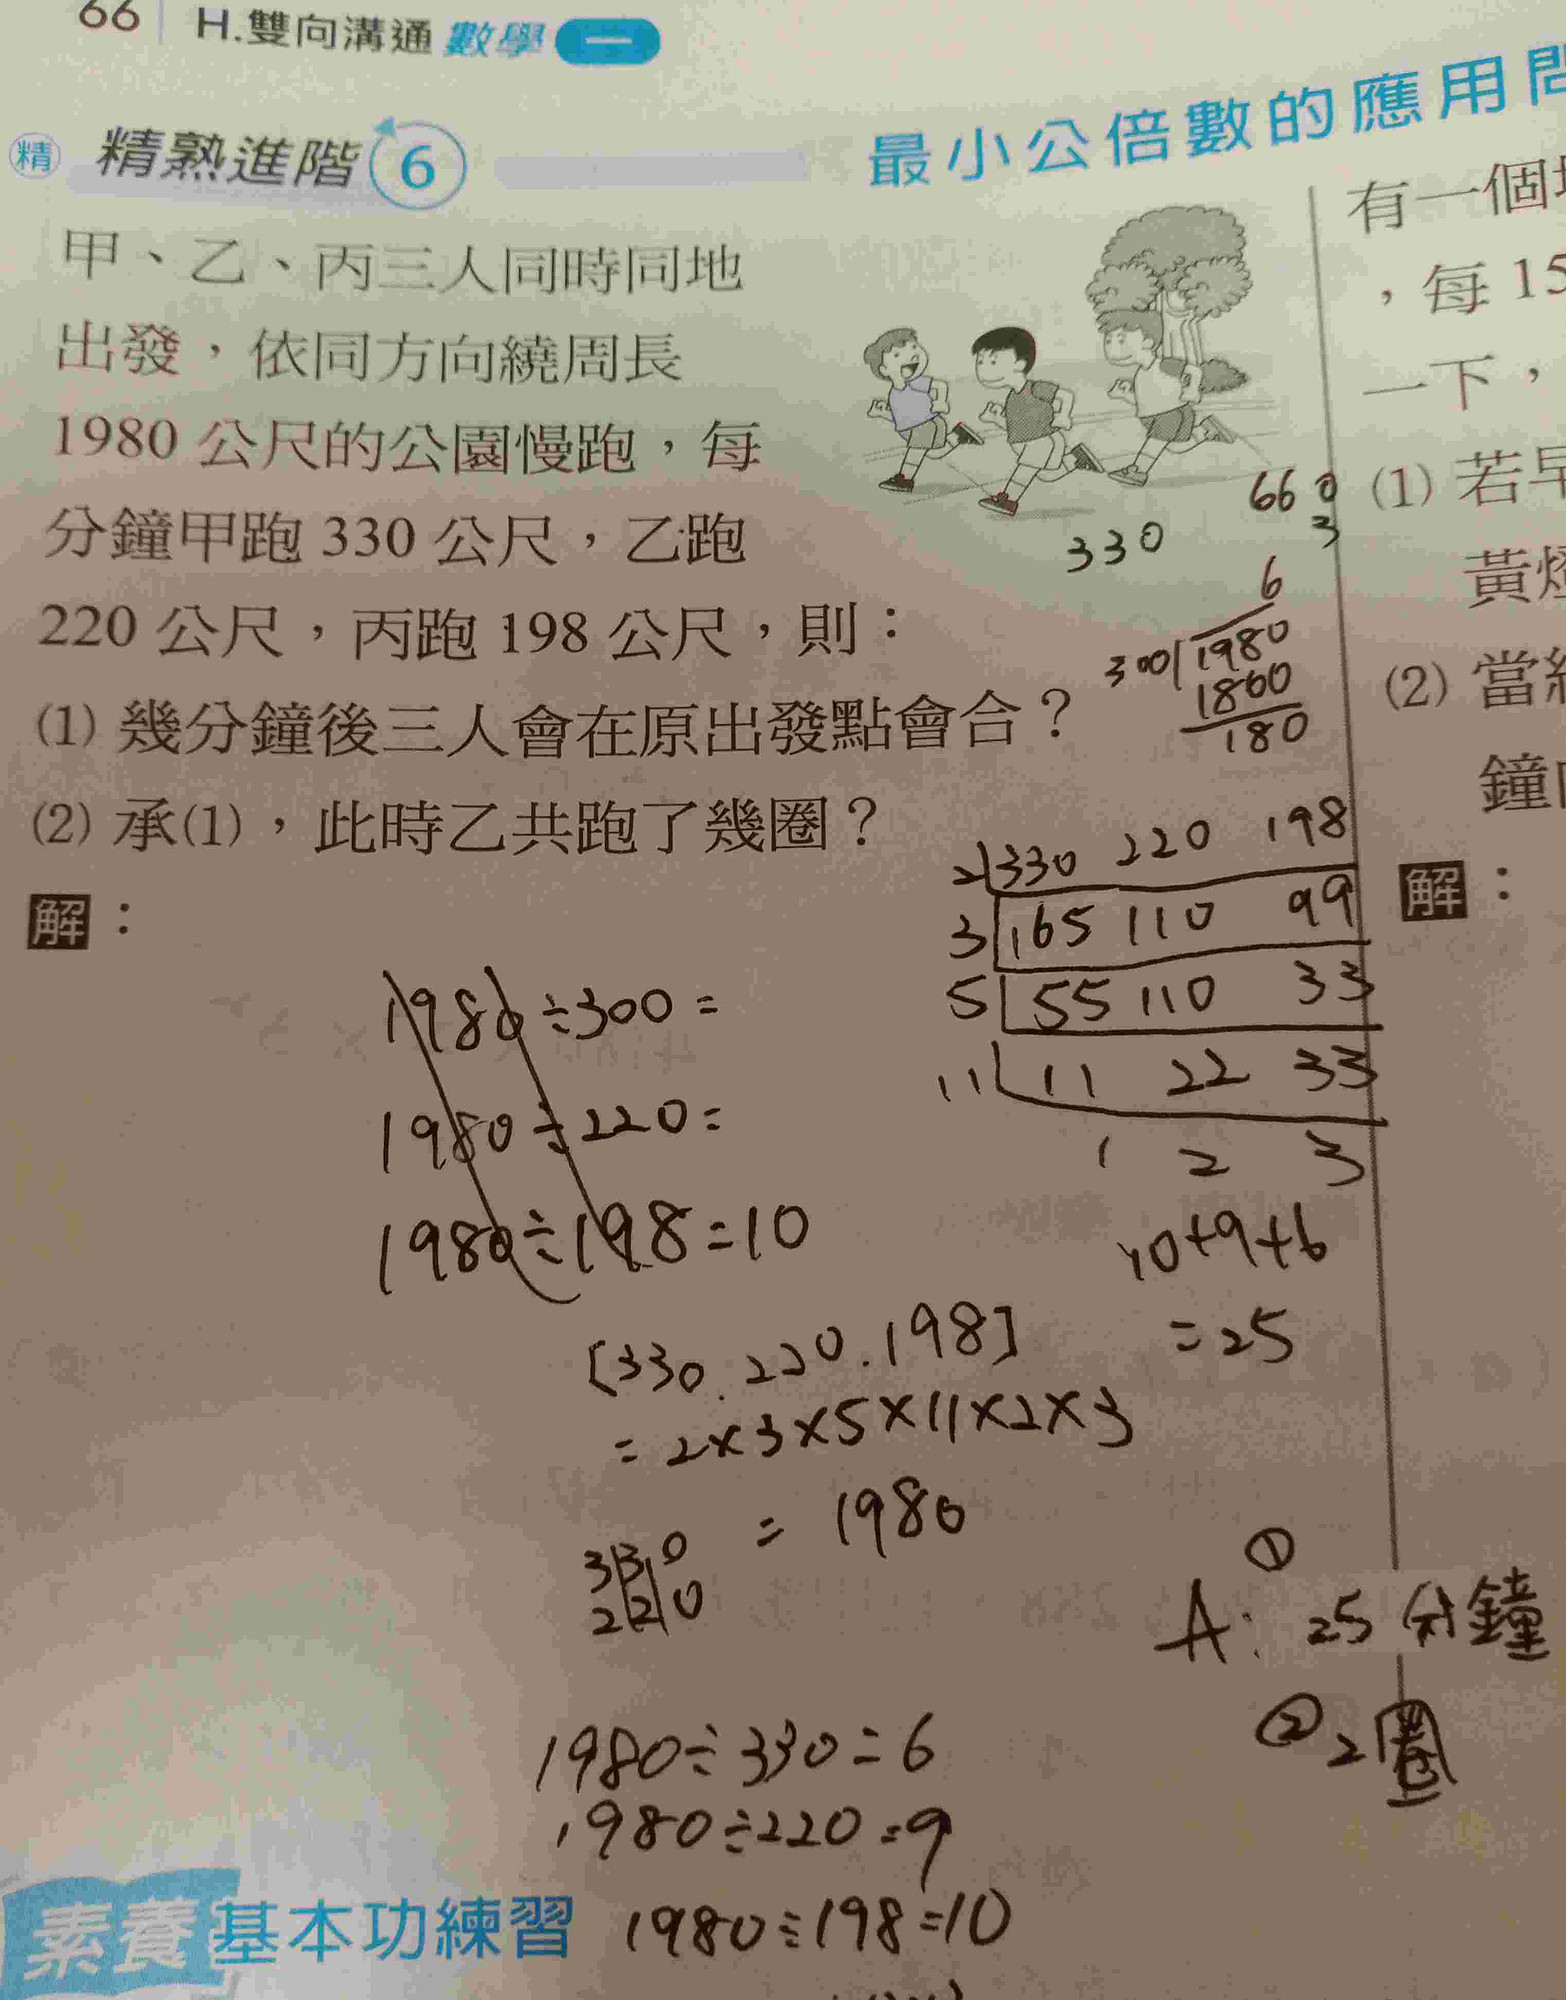 66 H.雙向溝通 數學 一
精 精熟進階 6
最小公倍數的應用
甲、乙、丙三人同時同地
出發,依同方向繞周長
1980 公尺的公園慢跑,每
分鐘甲跑 330 公尺,乙跑
220 公尺,丙跑 198 公尺,則:
(1) 幾分鐘後三人會在原出發點會合?
(2) 承(1),此時乙共跑了幾圈?
解:
660
3
330
6
300 1980
1860
180
2 330 220 198
3 165 110 99
5 55 110 33
11 11 22 33
1 2 3
10+9+6
=25
1980÷300=
1980÷220=
1980÷198=10
[330.220.198]
=2×3×5×11×2×3
=1980
330
220
1980÷330=6
1980÷220=9
1980÷198=10
A: ① 25分鐘
② 2圈
素養基本功練習
有一個
,每 15
一下,
(1) 若
黃
(2) 當
鐘
解: